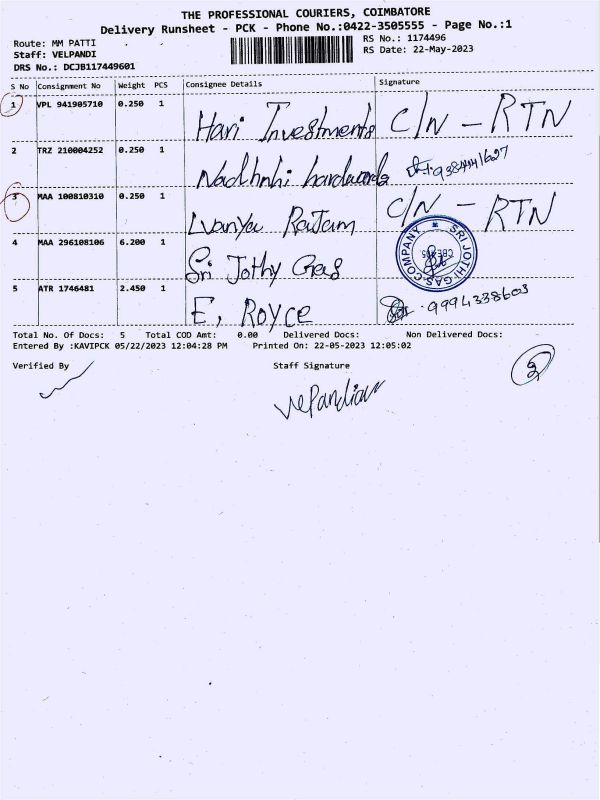 THE PROFESSIONAL COURIERS, COIMBATORE
Delivery Runsheet - PCK - Phone No.:0422-3505555 - Page No.:1
Route: MM PATTI RS No.: 1174496
Staff: VELPANDI RS Date: 22-May-2023
DRS No.: DCJB117449601
S No Consignment No Weight PCS Consignee Details Signature
1 VPL 941905710 0.250 1 Hari Investments C/N - RTN
2 TRZ 210004252 0.250 1
3 MAA 100810310 0.250 1 C/N - RTN
4 MAA 296108106 6.200 1 Sri Jothy Gas SRI JOTHI GAS COMPANY
5 ATR 1746481 2.450 1 E, Royce 9994338603
Total No. Of Docs: 5 Total COD Amt: 0.00 Delivered Docs: Non Delivered Docs:
Entered By :KAVIPCK 05/22/2023 12:04:28 PM Printed On: 22-05-2023 12:05:02
Verified By Staff Signature
2
velPandian